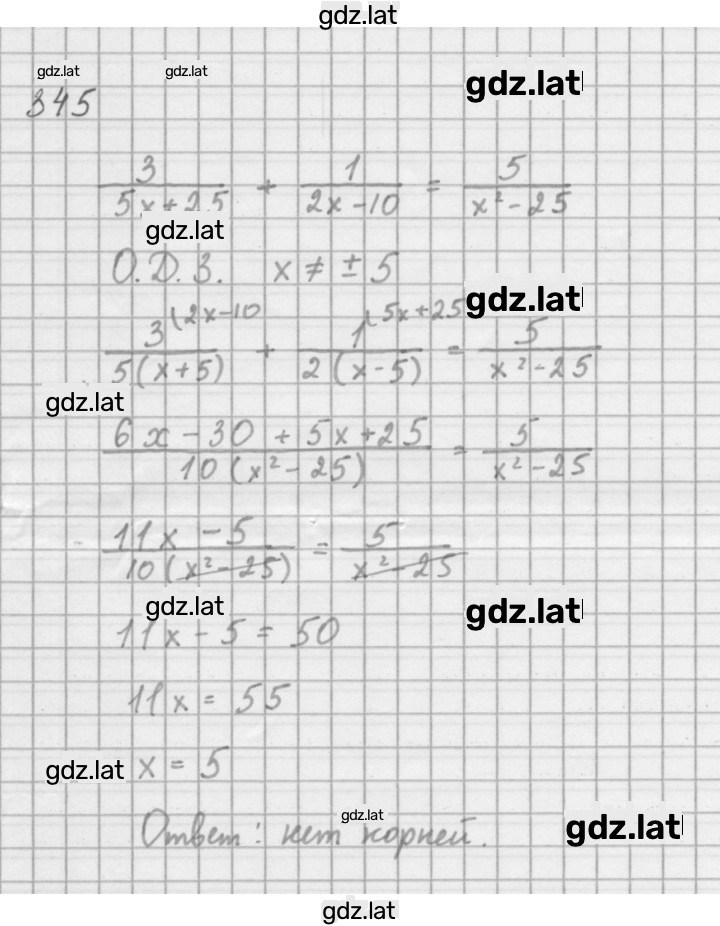 gdz.lat
gdz.lat gdz.lat gdz.lat
345
3/(5x+25) + 1/(2x-10) = 5/(x²-25)
gdz.lat
О.Д.З. x ≠ ± 5
gdz.lat
3(2x-10/5(x+5) + 1(5x+25/2(x-5) = 5/(x²-25)
gdz.lat
(6x-30+5x+25)/10(x²-25) = 5/(x²-25)
(11x-5)/10(x²-25) = 5/(x²-25)
gdz.lat gdz.lat
11x-5=50
11x=55
gdz.lat x=5
gdz.lat
Ответ: нет корней. gdz.lat
gdz.lat